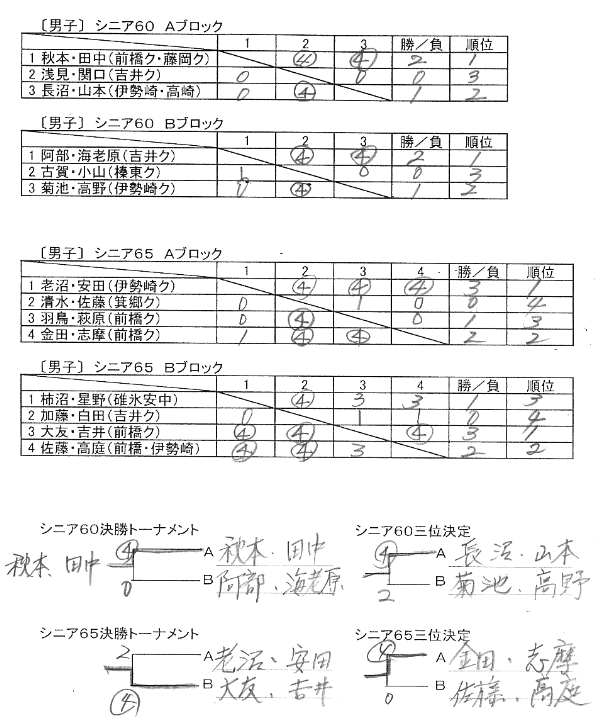 〔男子〕 シニア60 Aブロック
1 2 3 勝/負 順位
1 秋本・田中(前橋ク・藤岡ク) ④ ④ 2 1
2 浅見・関口(吉井ク) 0 0 0 3
3 長沼・山本(伊勢崎・高崎) 0 ④ 1 2
〔男子〕 シニア60 Bブロック
1 2 3 勝/負 順位
1 阿部・海老原(吉井ク) ④ ④ 2 1
2 古賀・小山(榛東ク) 1 0 0 3
3 菊池・高野(伊勢崎ク) 0 ④ 1 2
〔男子〕 シニア65 Aブロック
1 2 3 4 勝/負 順位
1 老沼・安田(伊勢崎ク) ④ ④ ④ 3 1
2 清水・佐藤(箕郷ク) 0 1 0 0 4
3 羽鳥・萩原(前橋ク) 0 ④ 0 1 3
4 金田・志摩(前橋ク) 1 ④ ④ 2 2
〔男子〕 シニア65 Bブロック
1 2 3 4 勝/負 順位
1 柿沼・星野(碓氷安中) ④ 3 3 1 3
2 加藤・白田(吉井ク) 0 1 1 0 4
3 大友・吉井(前橋ク) ④ ④ ④ 3 1
4 佐藤・高庭(前橋・伊勢崎) ④ ④ 3 2 2
シニア60決勝トーナメント
秋本、田中 ④ A 秋本・田中
0 B 阿部、海老原
シニア60三位決定
④ A 長沼・山本
2 B 菊池、高野
シニア65決勝トーナメント
2 A 老沼・安田
④ B 大友・吉井
シニア65三位決定
④ A 金田・志摩
0 B 佐藤、高庭